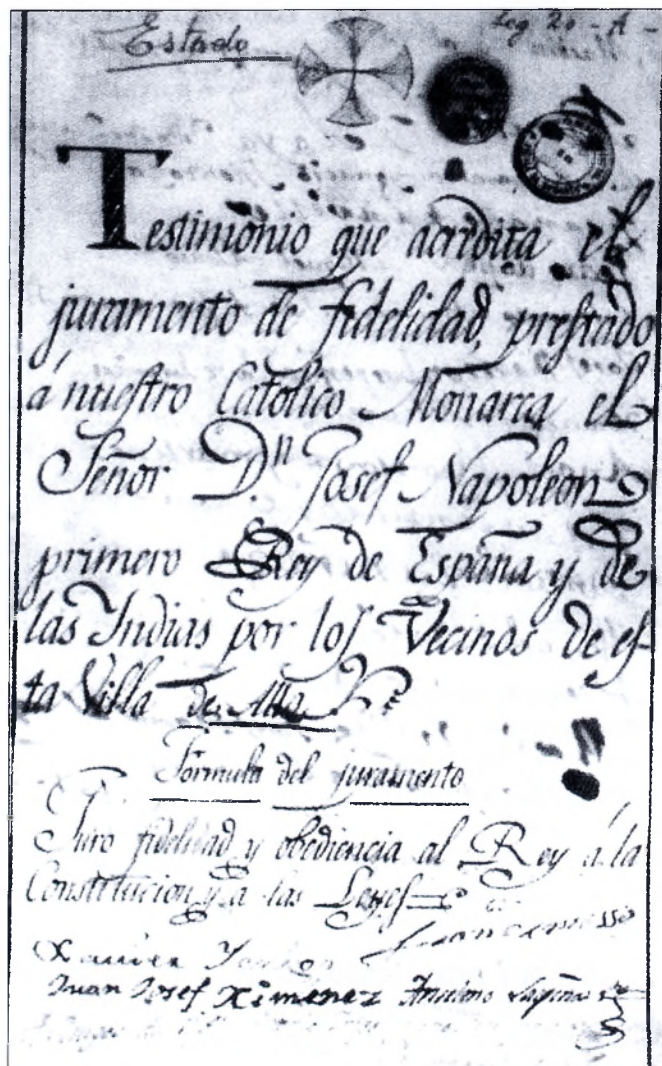 Estado
Leg 20 - A -
Testimonio que acredita el
juramento de fidelidad, prestado
á nuestro Catolico Monarca el
Señor D.n Josef Napoleon
primero Rey de España y de
las Indias por los Vecinos de es-
ta Villa de
Formula del juramento
Juro fidelidad y obediencia al Rey á la
Constitucion y a las Leyes
Xavier
Juan Josef Ximenez Anselmo